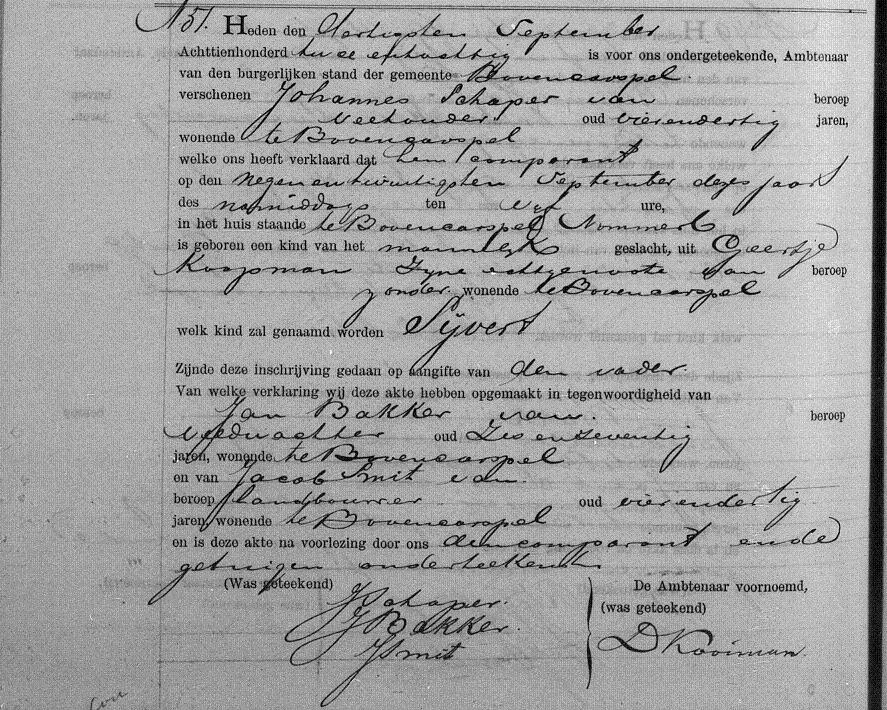 N 51. Heden den dertigsten September
Achttienhonderd twee en tachtig is voor ons ondergeteekende, Ambtenaar
van den burgerlijken stand der gemeente Bovencarspel
verschenen Johannes Schaper van beroep
Veehouder oud vierendertig jaren,
wonende te Bovencarspel
welke ons heeft verklaard dat hem comparant
op den negenentwintigsten September dezes jaars
des namiddags ten vijf ure,
in het huis staande te Bovencarspel Nommer
is geboren een kind van het mannelijk geslacht, uit Geertje
Koopman zijne echtgenoote van beroep
zonder, wonende te Bovencarspel
welk kind zal genaamd worden Sijvert
Zijnde deze inschrijving gedaan op aangifte van den vader.
Van welke verklaring wij deze akte hebben opgemaakt in tegenwoordigheid van
Jan Bakker van. beroep
Veldwachter oud Zesenzeventig
jaren, wonende te Bovencarspel
en van Jacob Smit van.
beroep Landbouwer oud vierendertig
jaren, wonende te Bovencarspel
en is deze akte na voorlezing door ons den comparant en de
getuigen onderteekend
(Was geteekend) De Ambtenaar voornoemd,
J Schaper. (was geteekend)
J Bakker. D Kooiman.
J Smit